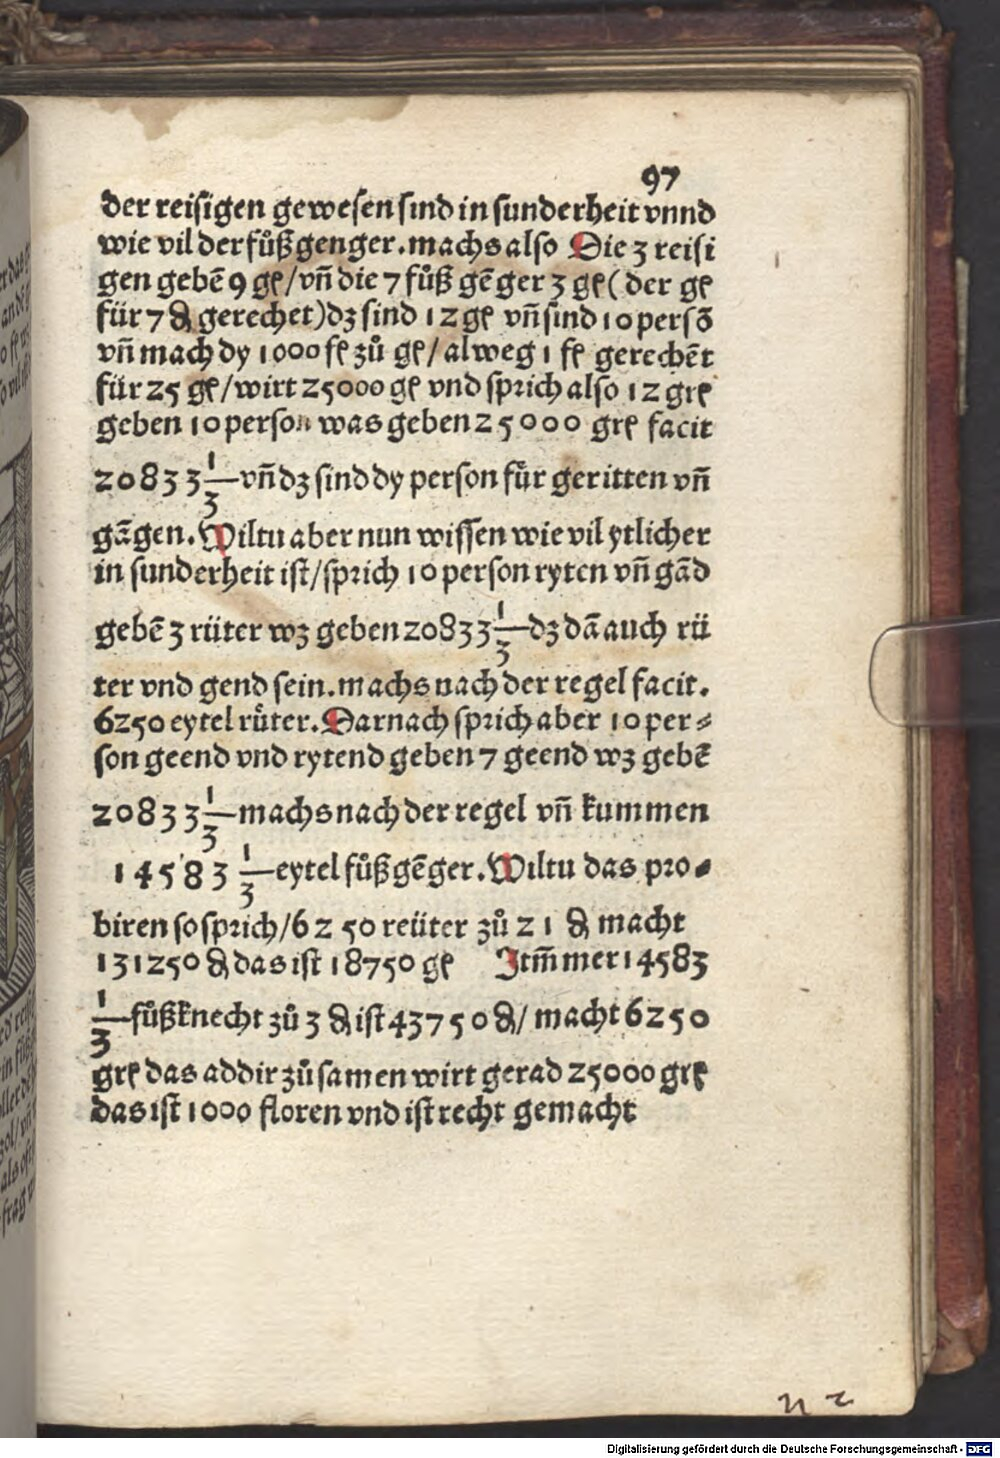 97
der reisigen gewesen sind in sunderheit vnnd
wie vil der fůßgenger. machs also Die 3 reisi
gen gebē 9 gꝭ/vn̄ die 7 fůß gēger 3 gꝭ (der gꝭ
für 7 ₰ gerechet) dꝫ sind 12 gꝭ vn̄ sind 10 persō
vn̄ mach dy 1000 fꝭ zů gꝭ/alweg 1 fꝭ gerechēt
für 25 gꝭ/wirt 25000 gꝭ vnd sprich also 12 grꝭ
geben 10 person was geben 25000 grꝭ facit
20833 1/3 vn̄ dꝫ sind dy person für geritten vn̄
gāgen. Wiltu aber nun wissen wie vil ytlicher
in sunderheit ist/sprich 10 person ryten vn̄ gād
gebē 3 rüter wꝫ geben 20833 1/3 dꝫ dā auch rü
ter vnd gend sein. machs nach der regel facit.
6250 eytel růter. Darnach sprich aber 10 per⸗
son geend vnd rytend geben 7 geend wꝫ gebē
20833 1/3 machs nach der regel vn̄ kummen
14583 1/3 eytel fůßgēger. Wiltu das pro⸗
biren so sprich/6250 reüter zů 21 ₰ macht
131250 ₰ das ist 18750 gꝭ Itm̄ mer 14583
1/3 fůßknecht zů 3 ₰ ist 43750 ₰/ macht 6250
grꝭ das addir zů samen wirt gerad 25000 grꝭ
das ist 1000 floren vnd ist recht gemacht
n 2
Digitalisierung gefördert durch die Deutsche Forschungsgemeinschaft - DFG